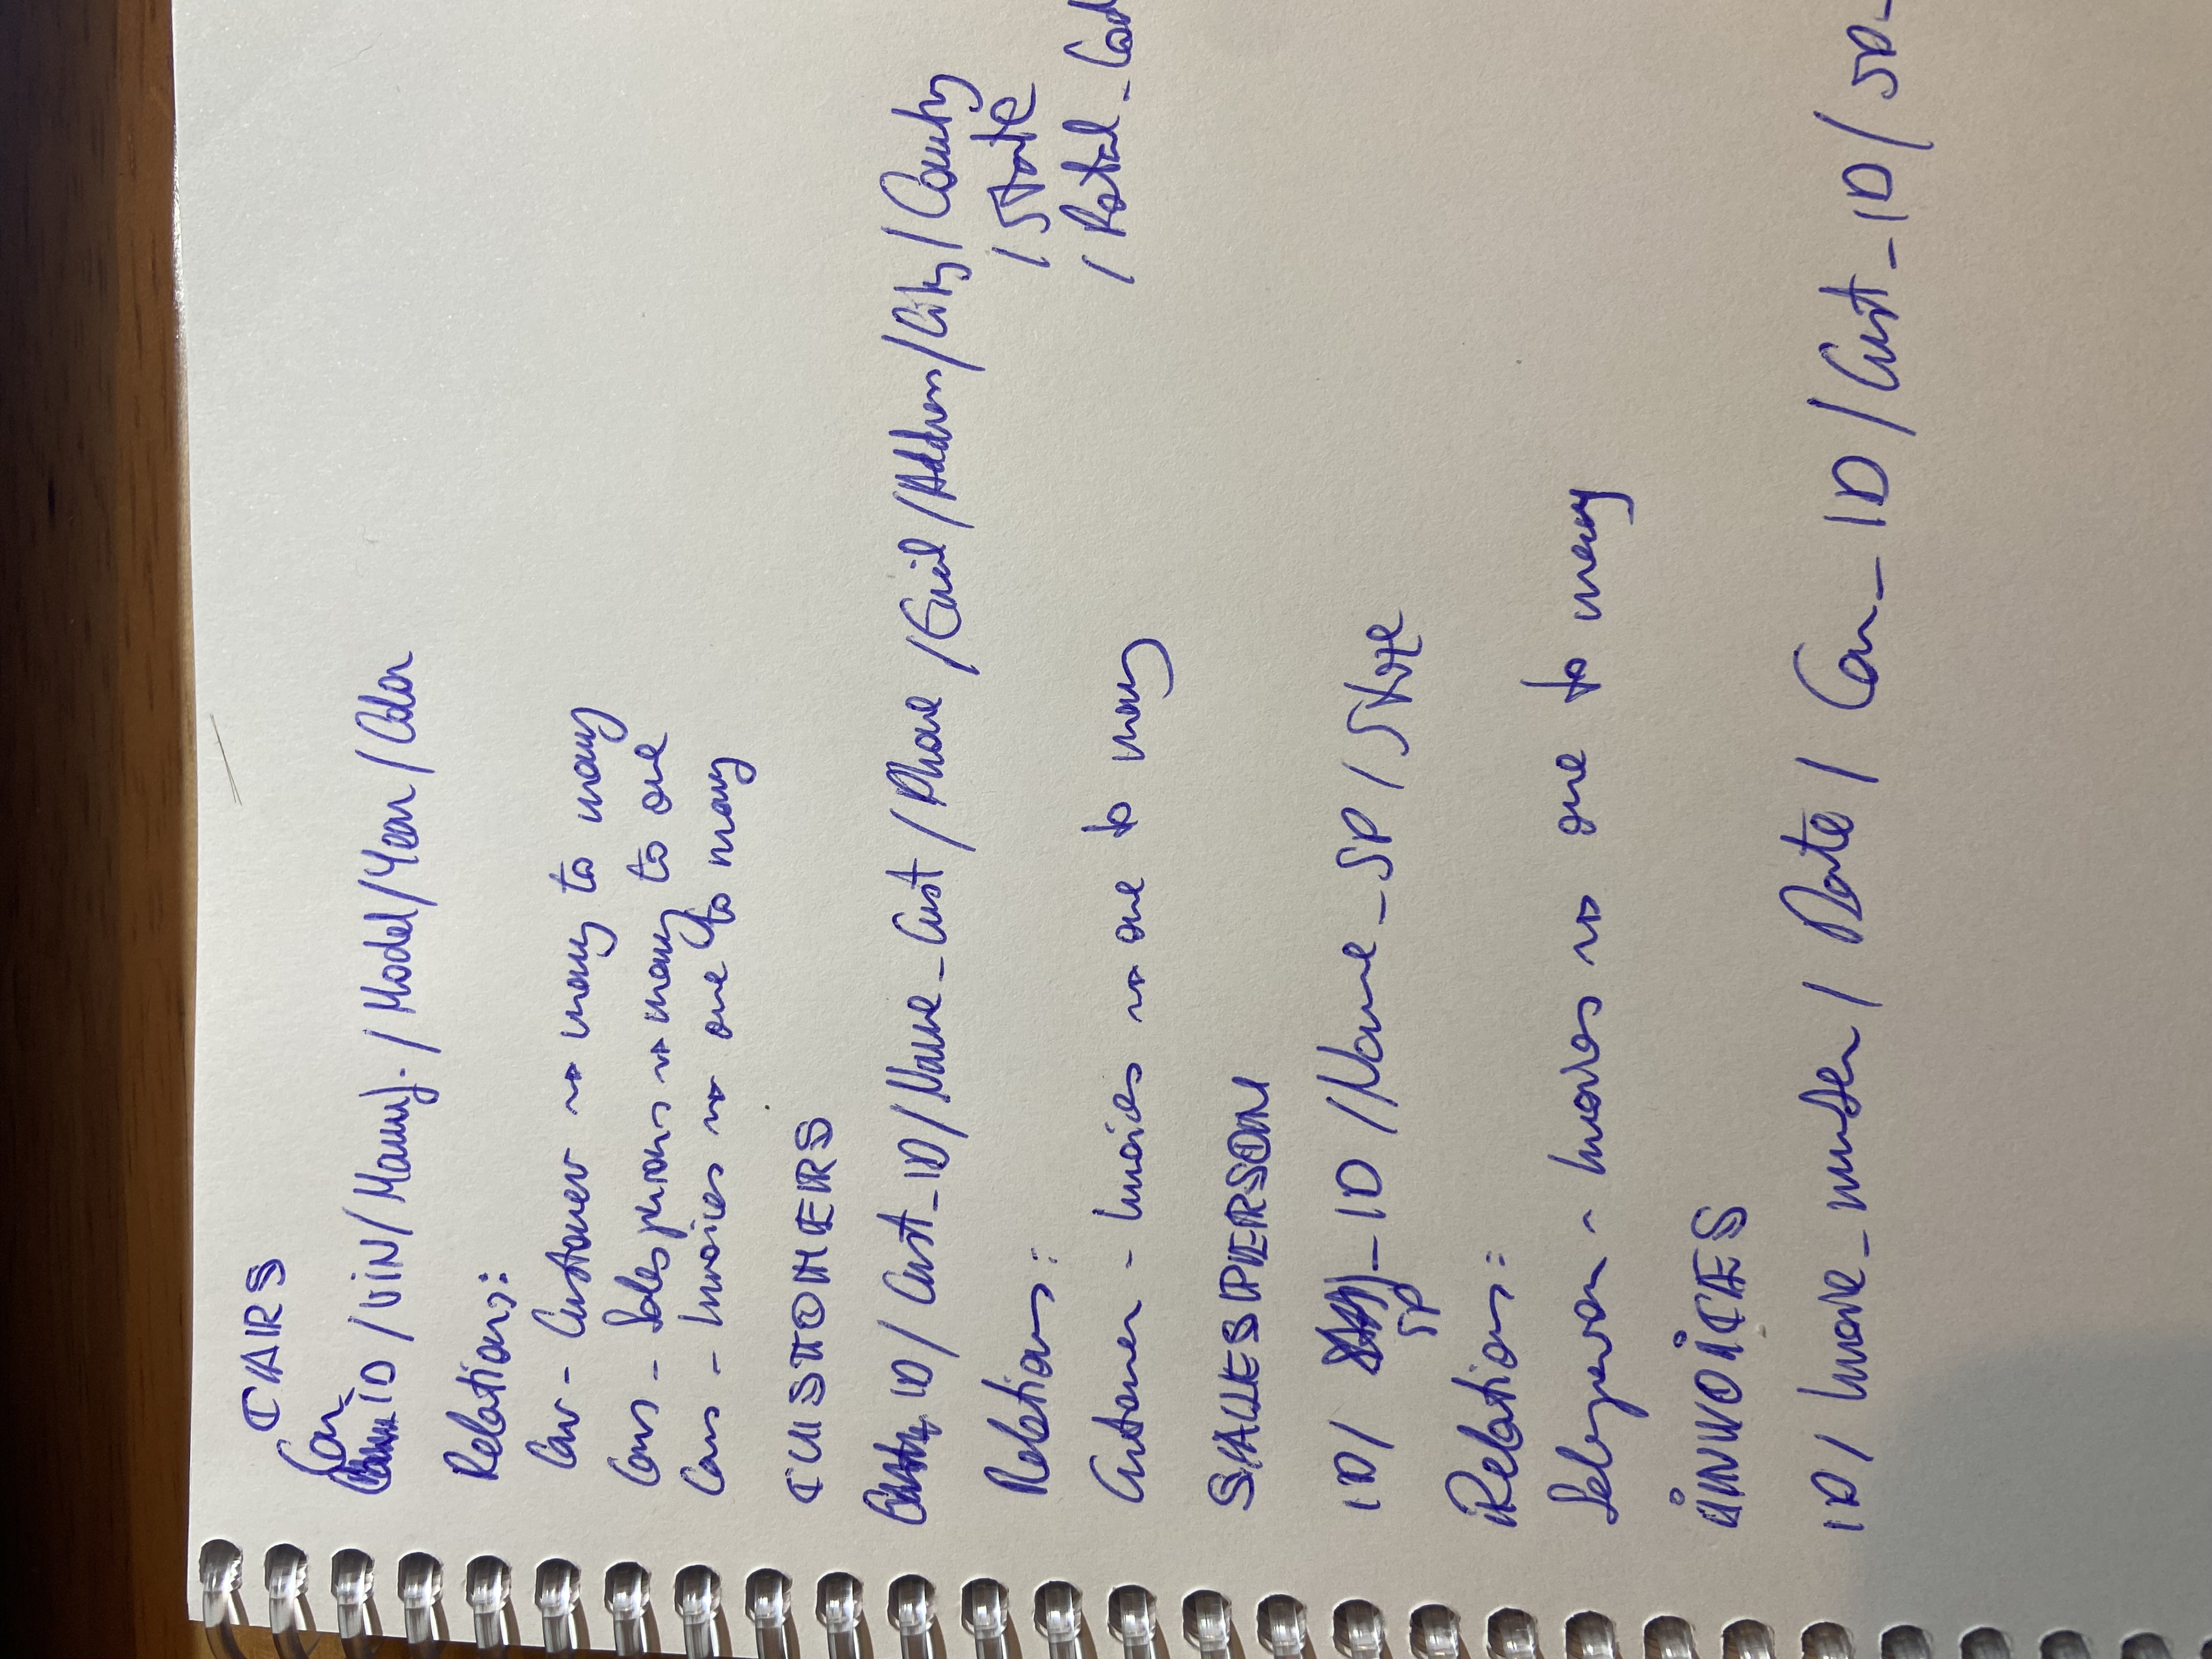 CARS
Car
ID / ViN / Manuf. / Model / Year / Color
Relations:
Car - Customer → many to many
Cars - Salespersons → many to one
Cars - Invoices → one to many
CUSTOMERS
ID / Cust_ID / Name_Cust / Phone / Email / Address / City / Country
/ State
/ Postal_Cod
Relations:
Customer - Invoices → one to many
SALESPERSON
ID / _ID / Name_SP / Store
SP
Relations:
Salesperson - Invoices → one to many
iNVOiCES
ID / Invoice_number / Date / Car_ID / Cust_ID / SP_